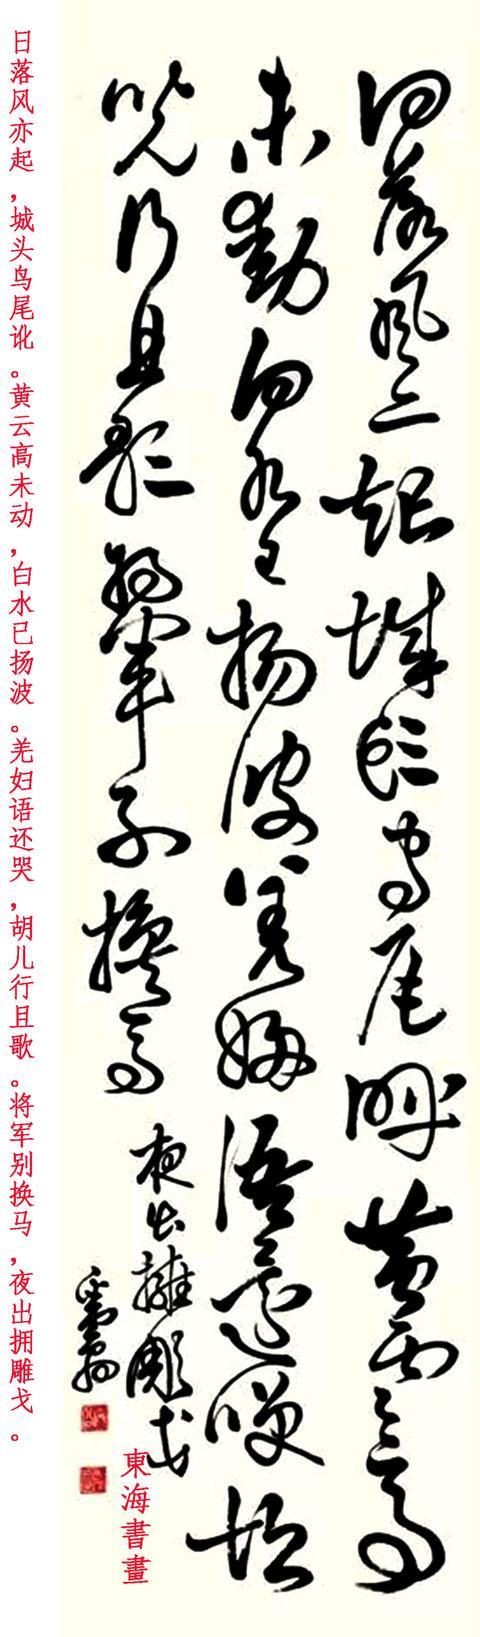 日落風亦起城頭鳥尾訛黃雲高
未動白水已揚波羌婦語還哭胡
兒行且歌將軍別換馬
夜出擁彫戈
東海書畫
日落风亦起，城头鸟尾讹。黄云高未动，白水已扬波。羌妇语还哭，胡儿行且歌。将军别换马，夜出拥雕戈。